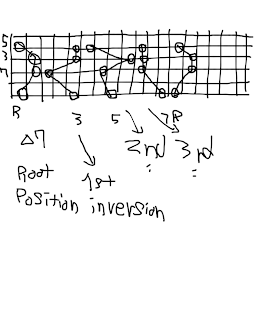 5
3
7
R 3 5 7R
Δ7 2nd 3rd
Root 1st
Position inversion